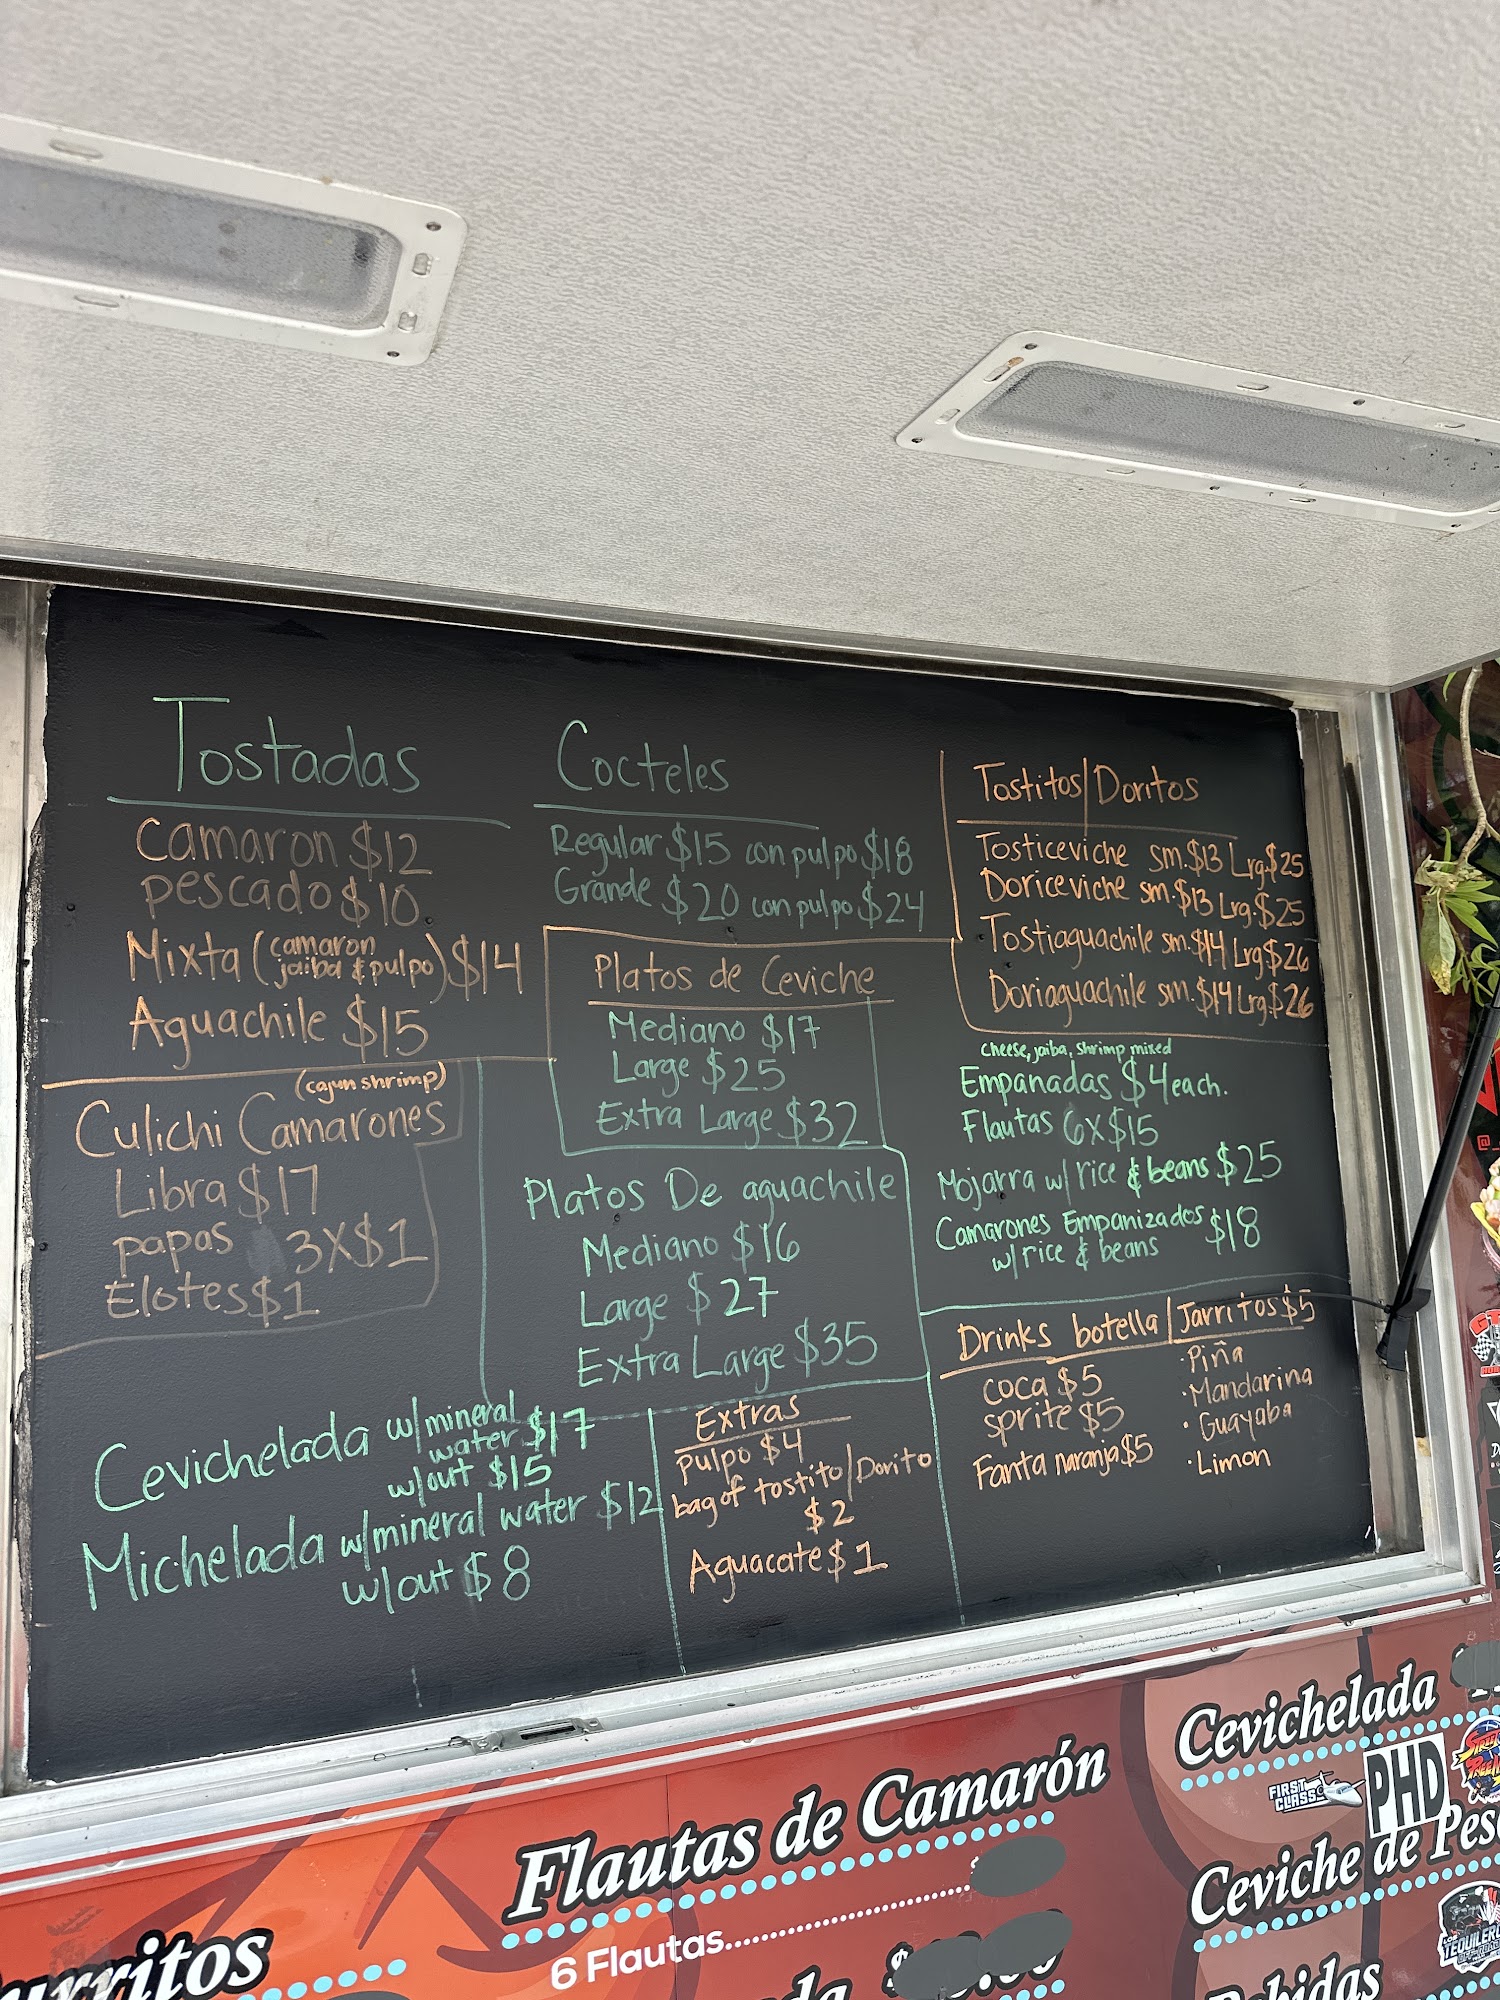 Tostadas
Camaron $12
pescado $10
Mixta (camaron jaiba & pulpo) $14
Aguachile $15
(cajun shrimp)
Culichi Camarones
Libra $17
papas 3X$1
Elotes $1
Cocteles
Regular $15 con pulpo $18
Grande $20 con pulpo $24
Platos de Ceviche
Mediano $17
Large $25
Extra Large $32
Platos De aguachile
Mediano $16
Large $27
Extra Large $35
Tostitos/Doritos
Tosticeviche sm.$13 Lrg.$25
Doriceviche sm.$13 Lrg.$25
Tostiaguachile sm.$14 Lrg$26
Doriaguachile sm.$14 Lrg.$26
cheese, jaiba, shrimp mixed
Empanadas $4 each.
Flautas 6X$15
Mojarra w/ rice & beans $25
Camarones Empanizados $18
w/ rice & beans
Cevichelada w/mineral water $17
w/out $15
Michelada w/mineral water $12
w/out $8
Extras
pulpo $4
bag of tostito/Dorito
$2
Aguacate $1
Drinks botella
coca $5
sprite $5
Fanta naranja $5
Jarritos $5
·Piña
·Mandarina
·Guayaba
·Limon
Flautas de Camarón
6 Flautas
Cevichelada
FIRST CLASS
PHD
Ceviche de